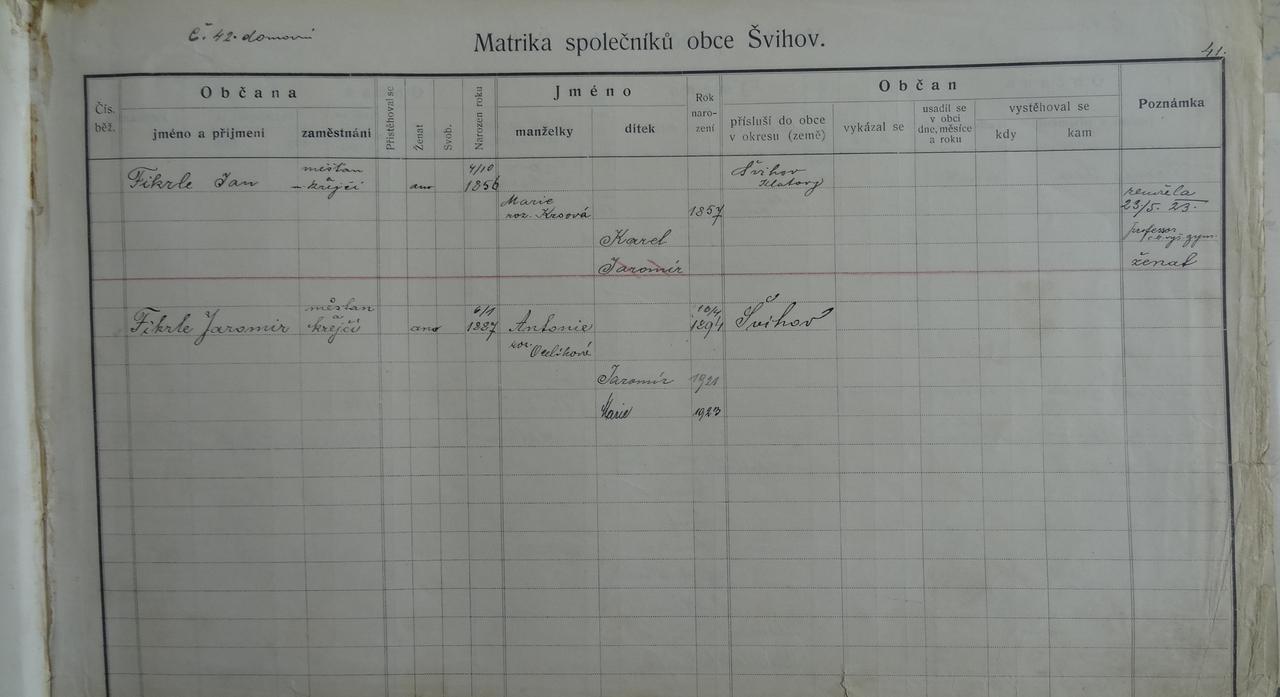 č. 42. domovní
Matrika společníků obce Švihov.
41.
Čís. běž.
Občana
jméno a přijmení
zaměstnání
Přistěhoval se
Ženat
Svob.
Narozen roku
Jméno
manželky
dítek
Rok naro- zení
Občan
přísluší do obce v okresu (země)
vykázal se
usadil se v obci dne, měsíce a roku
vystěhoval se
kdy
kam
Poznámka
Fikrle Jan
měšťan
a krejčí
ano
4/10
1856
Švihov
Klatovy
Marie
roz. Krsová
1857
zemřela
23/5. 23.
Karel
professor
Jaromír
ženat
Fikrle Jaromír
měšťan
a
krejčí
ano
6/1
1887
Antonie
roz.
10/4
1894
Švihov
Jaromír
1921
Marie
1923